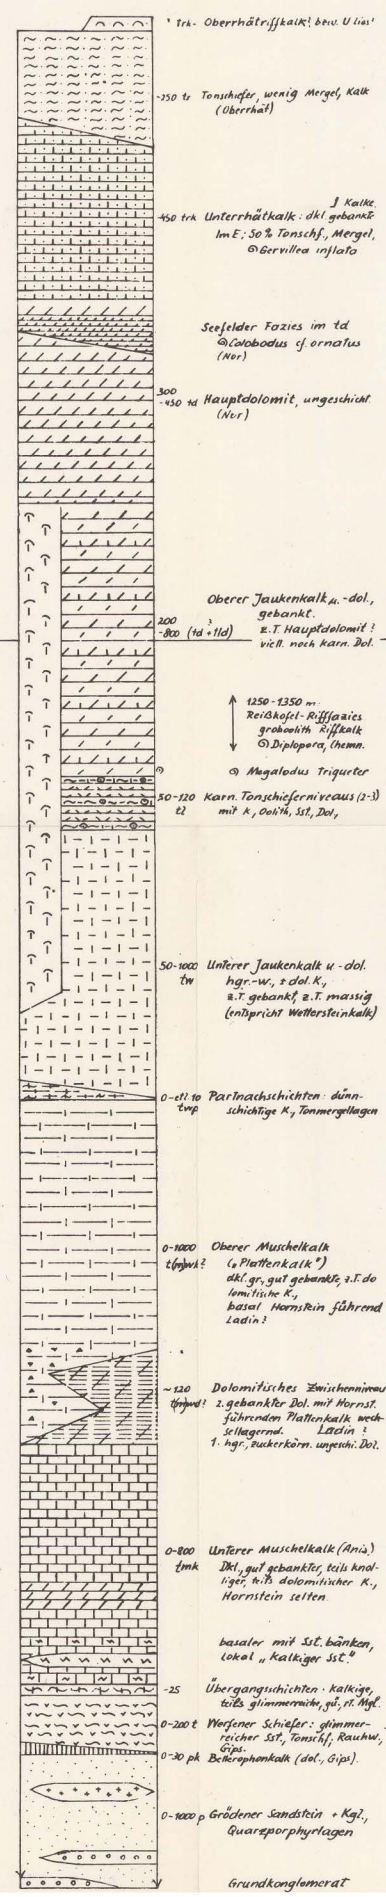 trk- Oberrhätriffkalk! bezw. U lias!
-250 tr Tonschiefer, wenig Mergel, Kalk
(Oberrhät)
Kalke
-450 trk Unterrhätkalk: dkl. gebankte
Im E; 50% Tonschf., Mergel,
Gervillea inflata
Seefelder Fazies im td
Colobodus cf. ornatus
(Nor)
300
-450 td Hauptdolomit, ungeschicht.
(Nor)
Oberer Jaukenkalk u. -dol.,
gebankt.
200
-800 (td + tld) z.T. Hauptdolomit?
viell. noch karn. Dol.
1250-1350 m
Reißkofel-Rifffazies
groboolith Riffkalk
Diplopora, Chemn.
Megalodus Triqueter
50-120 Karn. Tonschieferniveaus (2-3)
tl mit K, Oolith, Sst., Dol,
50-1000 Unterer Jaukenkalk u -dol.
tw hgr.-w., ± dol. K.,
z.T. gebankt, z.T. massig
(entspricht Wettersteinkalk)
0-etl. 10 Partnachschichten: dünn-
twp schichtige K., Tonmergellagen
0-1000 Oberer Muschelkalk
t(m)wk? („Plattenkalk")
dkl. gr., gut gebankte, z.T. do
lomitische K.,
basal Hornstein führend
Ladin?
~120 Dolomitisches Zwischenniveau
t(m)wd? 2. gebankter Dol. mit Hornst.
führenden Plattenkalk wech-
sellagernd. Ladin?
1. hgr., zuckerkörn. ungeschi. Dol.
0-800 Unterer Muschelkalk (Anis.)
tmk Dkl., gut gebankter, teils knol-
liger, teils dolomitischer K.,
Hornstein selten
basaler mit Sst. bänken,
lokal „kalkiger Sst."
-25 Übergangsschichten: kalkige,
teils glimmerreiche, gü, rt. Mgl.
0-200 t Werfener Schiefer: glimmer-
reicher Sst., Tonschf, Rauhw.,
Gips.
0-30 pk Bellerophonkalk (dol., Gips).
0-1000 p Grödener Sandstein + Kgl.,
Quarzporphyrlagen
Grundkonglomerat